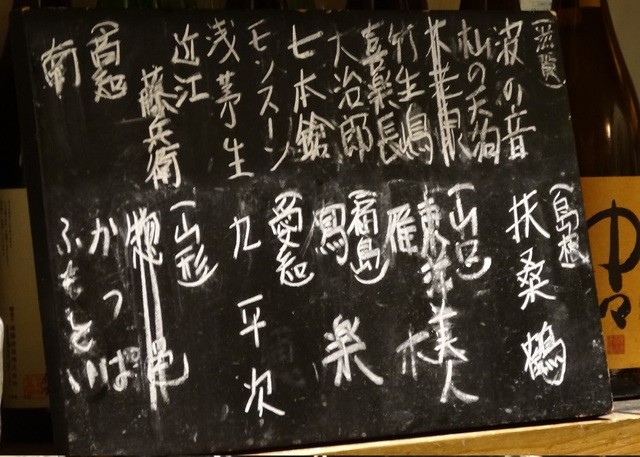 (滋賀)
波の音
松の天狗
不老泉
竹生嶋
喜楽長
大治郎
七本鎗
モンスーン
浅茅生
近江
藤兵衛
(高知)
南
(島根)
扶桑鶴
(山口)
東洋美人
雁木
(福島)
寫楽
(愛知)
九平次
(山形)
惣邑
かっぱ
ふもとい